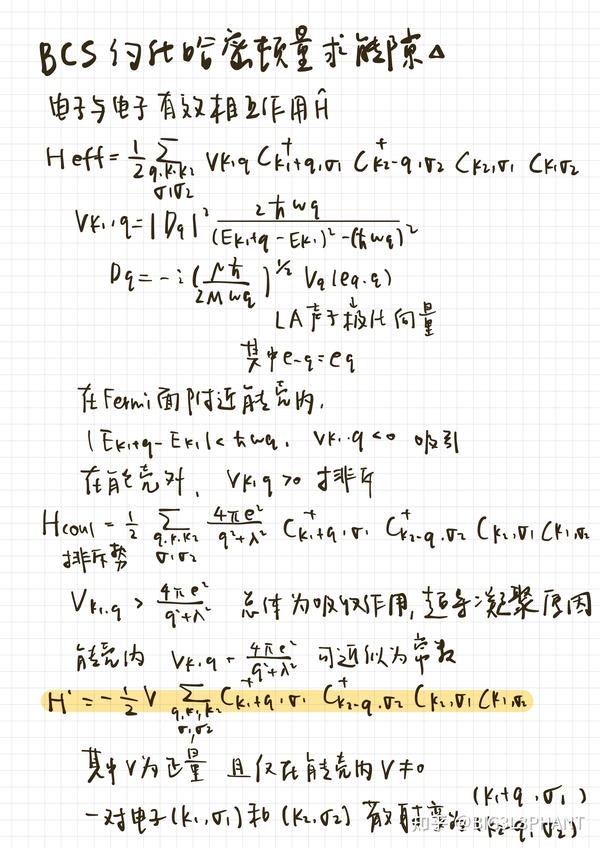 BCS约化哈密顿量求能隙Δ
电子与电子有效相互作用Ĥ
Heff = 1/2 Σ_{q,k₁,k₂ σ₁σ₂} V_{k₁,q} C⁺_{k₁+q,σ₁} C⁺_{k₂-q,σ₂} C_{k₂,σ₁} C_{k₁,σ₂}
V_{k₁,q} = |D_q|² 2ħω_q / ((E_{k₁+q} - E_{k₁})² - (ħω_q)²)
D_q = -i (Nħ / 2Mω_q)^{1/2} V_q (e_q·q)
LA声子极化向量
其中e_{-q} = e_q
在Fermi面附近能壳内,
|E_{k₁+q} - E_{k₁}| < ħω_q, V_{k₁,q} < 0 吸引
在能壳外, V_{k₁,q} > 0 排斥
Hcoul = 1/2 Σ_{q,k₁,k₂ σ₁σ₂} 4πe²/(q²+λ²) C⁺_{k₁+q,σ₁} C⁺_{k₂-q,σ₂} C_{k₂,σ₁} C_{k₁,σ₂}
排斥势
V_{k₁,q} > 4πe²/(q²+λ²) 总体为吸收作用,超导凝聚原因
能壳内 V_{k₁,q} - 4πe²/(q²+λ²) 可近似为常数
H' = -1/2 V Σ_{q,k₁,k₂ σ₁,σ₂} C⁺_{k₁+q,σ₁} C⁺_{k₂-q,σ₂} C_{k₂,σ₁} C_{k₁,σ₂}
其中V为正量 且仅在能壳内V≠0
一对电子(k₁,σ₁)和(k₂,σ₂)散射变为 (k₁+q,σ₁)
(k₂-q,σ₂)
知乎 @BIG3L3PHANT